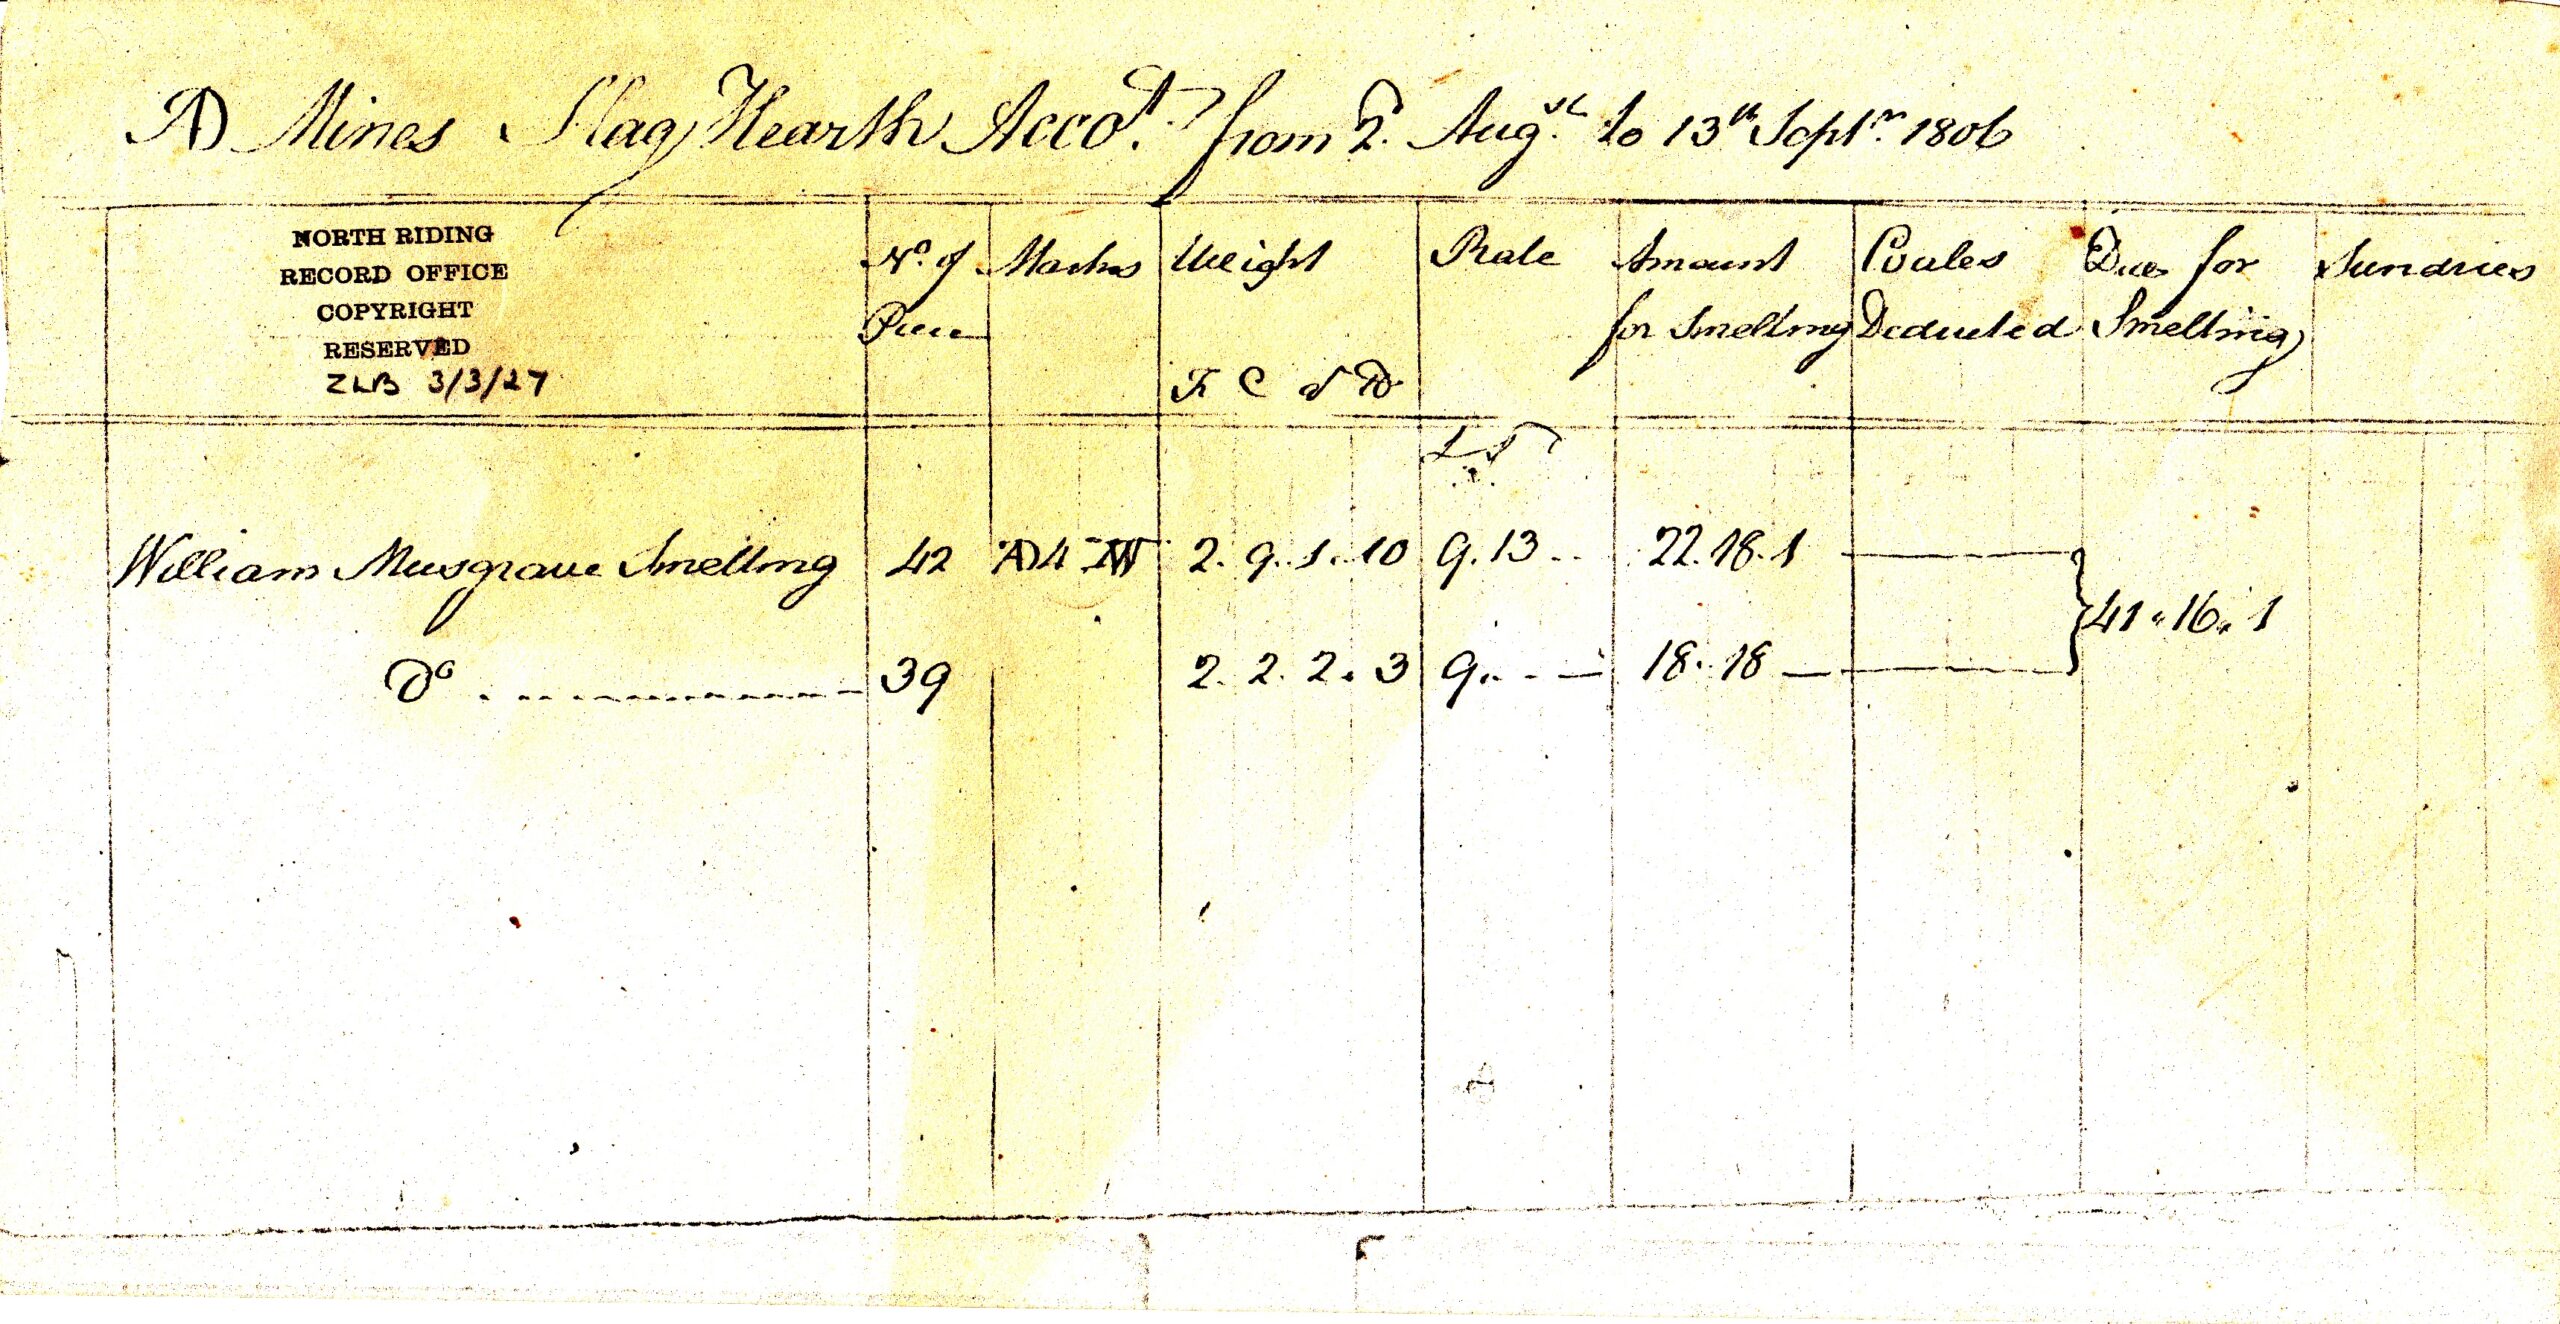 AD Mines Slag Hearth Accot. from 2d. Augst. to 13th Septr. 1806
NORTH RIDING
RECORD OFFICE
COPYRIGHT
RESERVED
ZLB 3/3/27
No. of Marks Weight Rate Amount Coales Due for Sundries
Piece for Smelting Deducted Smelting
T C qr lb
William Musgrave Smelting 42 AD 4 2. 9. 1. 10 9. 13 .. 22. 18. 1
41 " 16 " 1
Do 39 2. 2. 2. 3 9. - - 18. 18 -